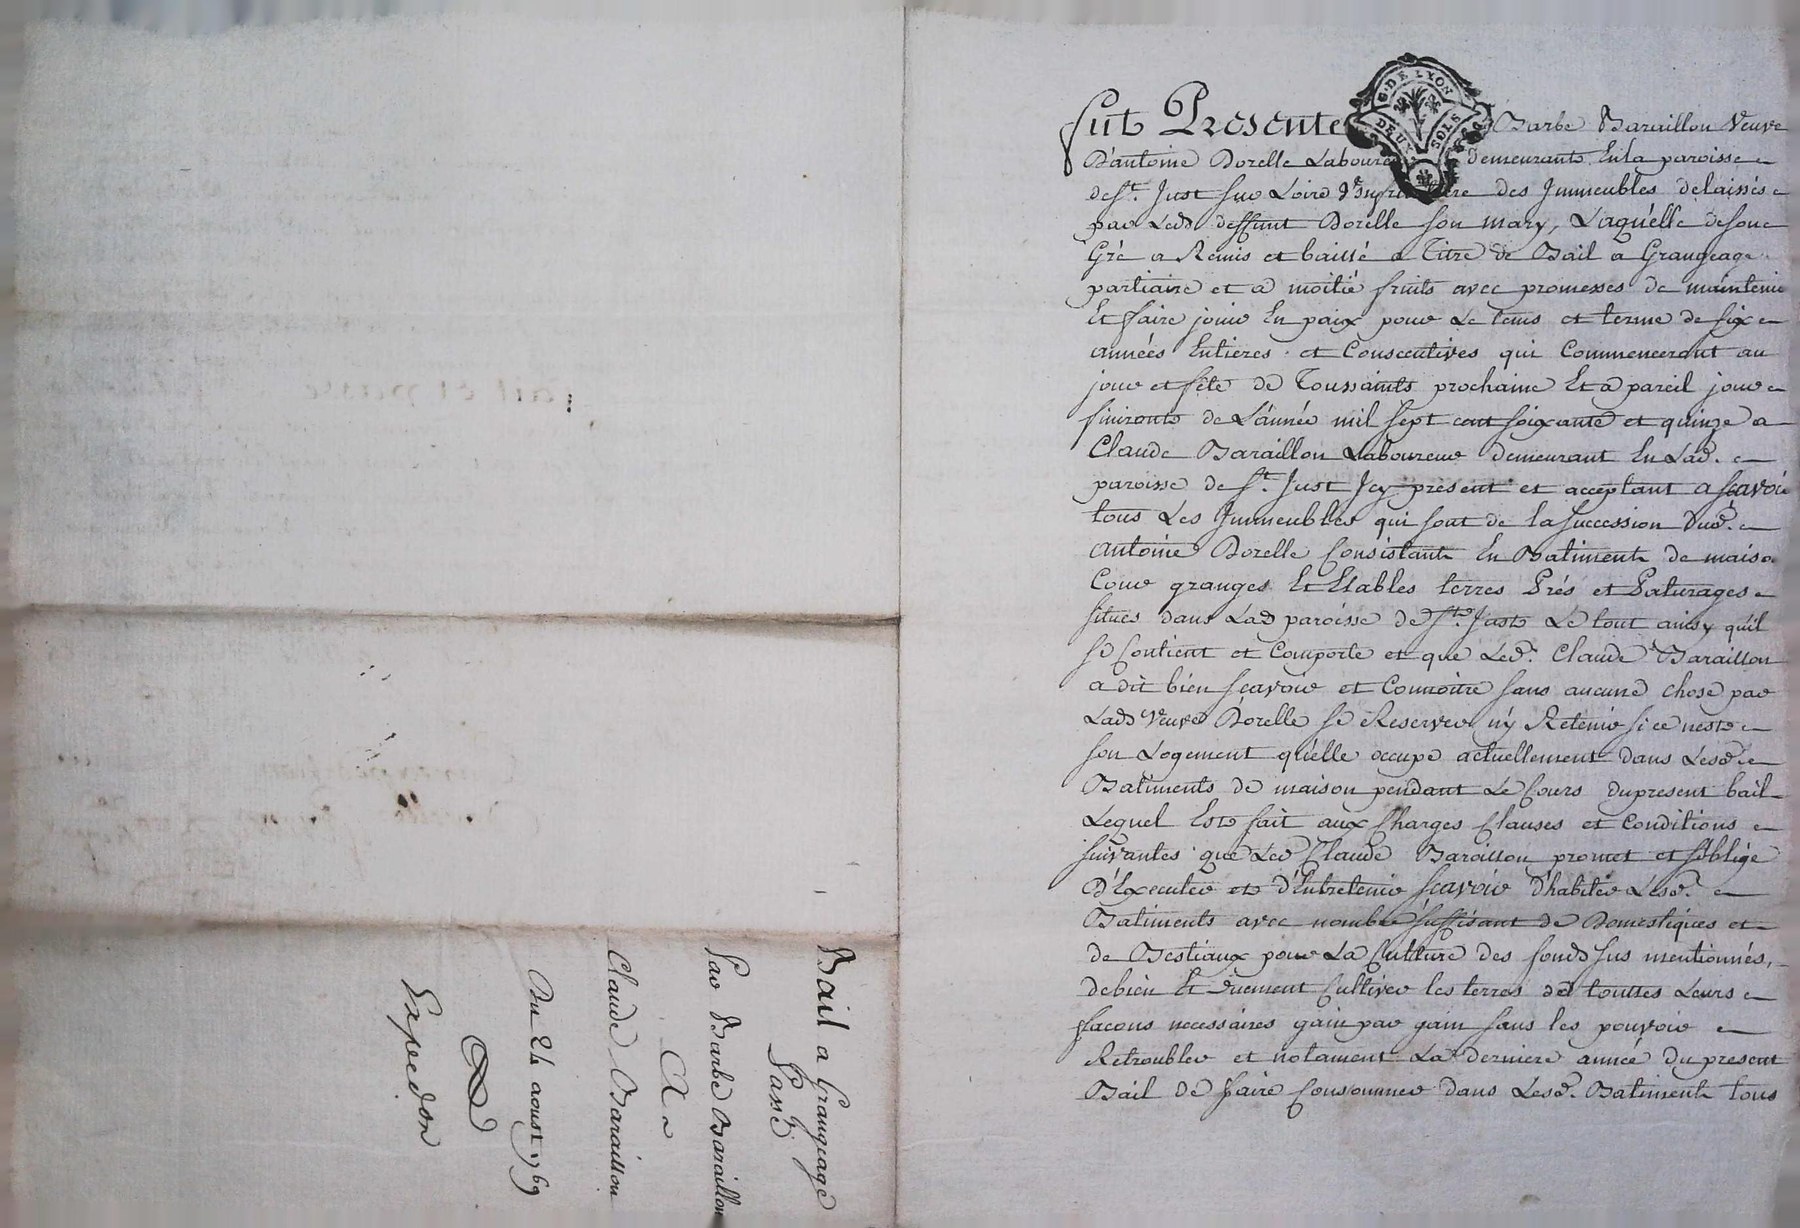 Bail a Grangeage
Passé
Par Barbe Baraillon
A
Claude Baraillon
Du 24 aoust 1769
Expedon
G. DE LYON
DEUX SOLS
Fut Presente Barbe Baraillon Veuve
D'antoine Dorelle Laboureur demeurante En la paroisse
de St. Just sur Loire des Immeubles delaissés
par Led deffunt Dorelle son mary, Laquelle de son
Gré a Remis et baissé a Titre de Bail a Grangeage
partiaire et a moitié fruits avec promesses de maintenir
Et ffaire jouir En paix pour Le tems et terme de six
années Entieres et Consecutives qui Commenceront au
jour et fête de Toussaints prochaine Et a pareil jour
finironts de L'année mil sept cent soixante et quinze a
Claude Baraillon Laboureur demeurant En Lad.
paroisse de St. Just Icy présent et acceptant a sçavoir
tous Les Immeubles qui sont de la succession Dud.
antoine Dorelle Consistants En Batiments de maiso
Cour granges Et Etables terres Prés et Paturages
situés dans Lad paroisse de St. Just Le tout ainsy qu'il
se Contient et Comporte et que Led. Claude Baraillon
a dit bien sçavoir et Connoitre sans aucune chose par
Lad Veuve Dorelle se Reserver n'y Retenir si ce nest
son Logement qu'elle occupe actuellement dans Lesd.
Batiments de maison pendant Le Cours du present bail
Lequel Est fait aux Charges Clauses et Conditions
suivantes que Led Claude Baraillon promet et s'oblige
D'Executer et d'Entretenir sçavoir D'habiter Lesd.
Batiments avec nombre suffisant de Domestiques et
de Bestiaux pour La Culture des fonds sus mentionnés,
de bien Et duement Cultiver les terres de touttes Leurs
ffacons necessaires gain par gain sans les pouvoir
Retroubler et notament La derniere année du present
Bail de ffaire Consommer dans Lesd. Batiments tous